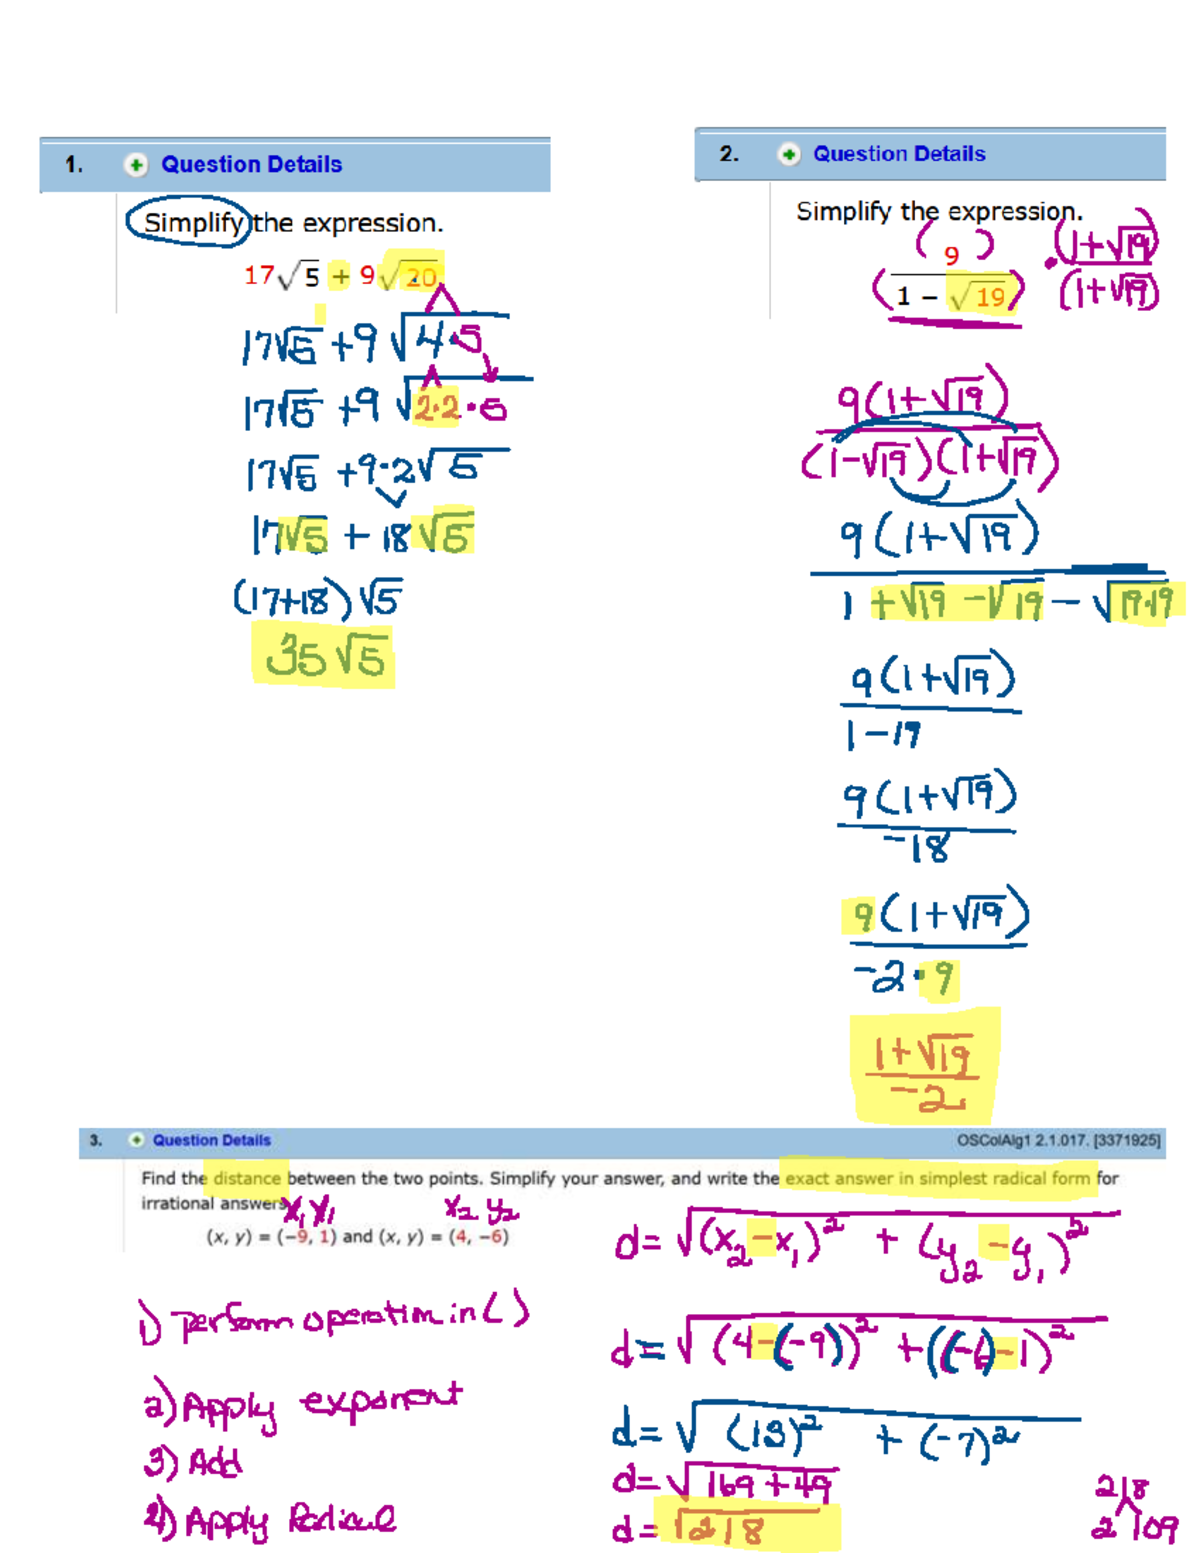 1. Question Details
Simplify the expression.
17√5 + 9√20
17√5 + 9√4·5
17√5 + 9√2·2·5
17√5 + 9·2√5
17√5 + 18√5
(17+18)√5
35√5
2. Question Details
Simplify the expression.
(9) / (1 − √19) · (1+√19) / (1+√19)
9(1+√19) / (1-√19)(1+√19)
9(1+√19) / 1 +√19 -√19 - √19·19
9(1+√19) / 1-19
9(1+√19) / -18
9(1+√19) / -2·9
1+√19 / -2
3. Question Details OSColAlg1 2.1.017. [3371925]
Find the distance between the two points. Simplify your answer, and write the exact answer in simplest radical form for
irrational answers
x₁ y₁ x₂ y₂
(x, y) = (−9, 1) and (x, y) = (4, −6)
1) Perform operation in ( )
2) Apply exponent
3) Add
4) Apply Radical
d= √(x₂-x₁)² + (y₂-y₁)²
d= √(4-(-9))² + ((-6)-1)²
d= √(13)² + (-7)²
d= √169+49
d= √218
218
2 109